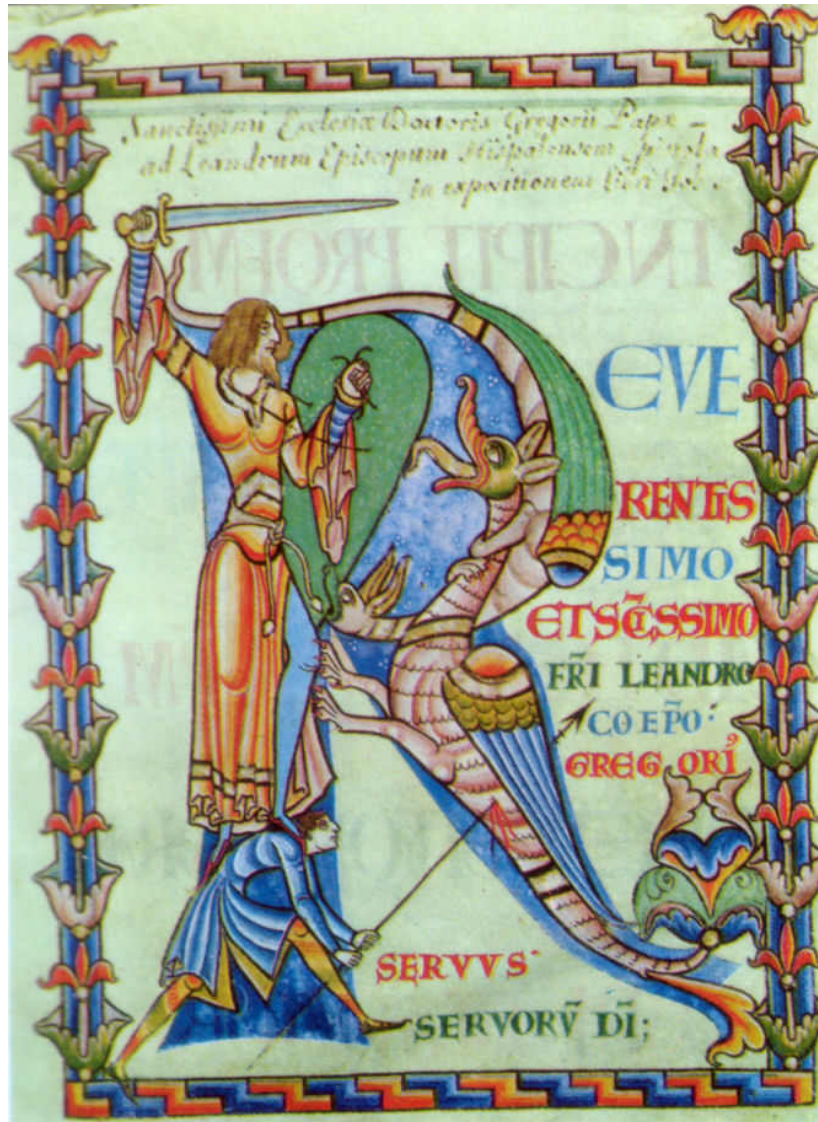 Sanctissimi Ecclesiæ Doctoris Gregorii Papæ
ad Leandrum Episcopum Hispalensem
in expositionem libri Job
INCIPIT PROEM
R
EVE
RENTIS
SIMO
ET SC̄ISSIMO
FR̄I LEANDRO
COEPŌ·
GREGORI⁹
SERVVS·
SERVORV̄ DĪ;